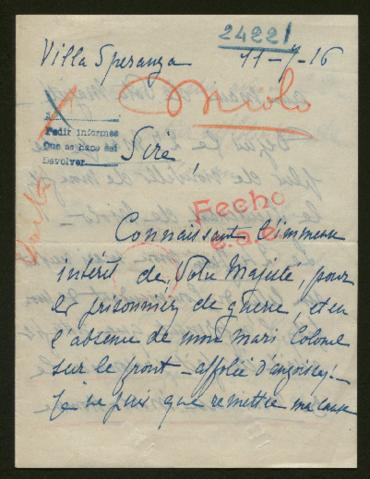 24221
Villa Speranza 11-7-16
Molo
A
Pedir informes
Que se hace así
Devolver
Sire,
Fecho
Connaissant l'immense
intérêt de Votre Majesté, pour
les prisonniers de guerre, et en
l'absence de mon mari Colonel
sur le front - affolée d'angoisses! -
Je ne puis que remettre ma cause